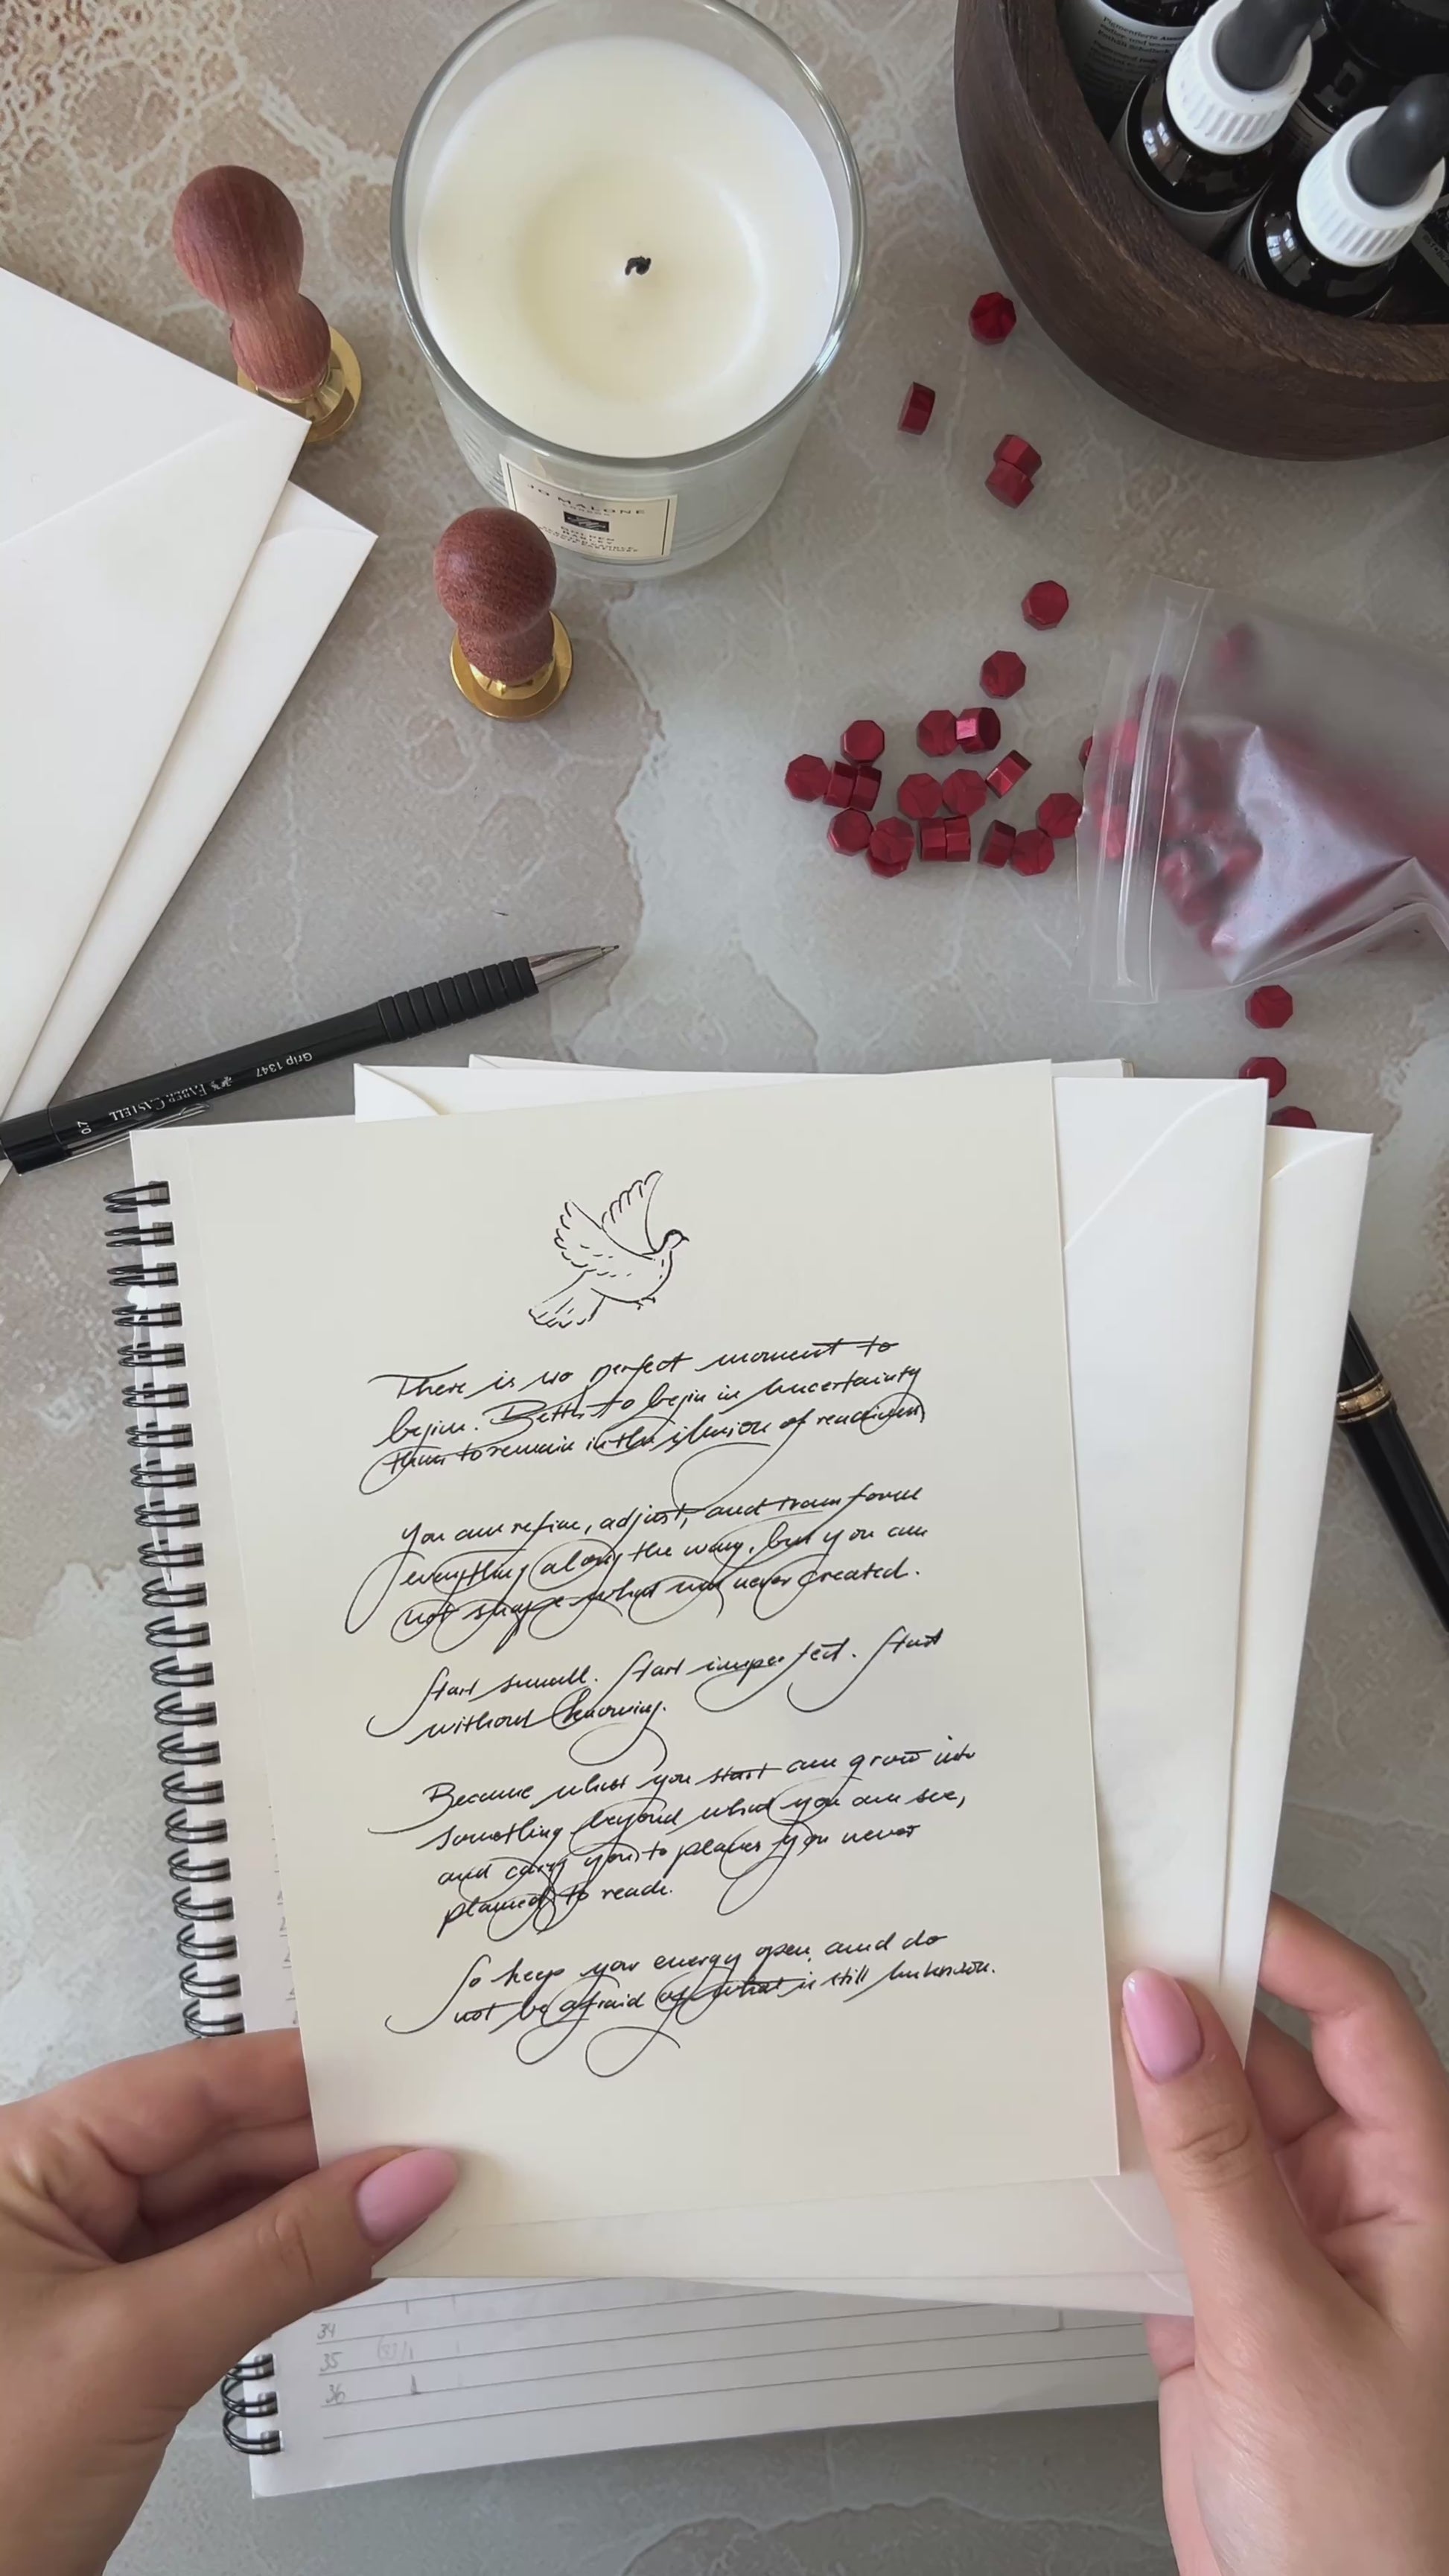 JO MALONE
LONDON
Grip 1347
FABER-CASTELL
07
There is no perfect moment to
begin. Better to begin in uncertainty
than to remain in the illusion of readiness
You can refine, adjust, and transform
everything along the way, but you can
not shape what was never created.
Start small. Start imperfect. Start
without knowing.
Because what you start can grow into
something beyond what you can see,
and carry you to places you never
planned to reach.
So keep your energy open and do
not be afraid of what is still unknown.
34
35
36